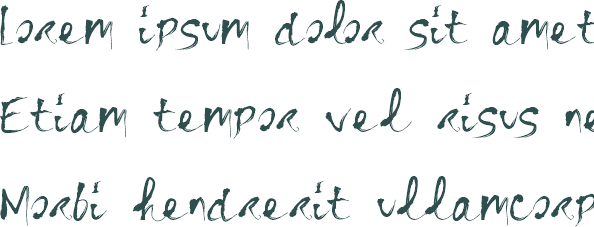 Lorem ipsum dolor sit amet
Etiam tempor vel risus ne
Morbi hendrerit ullamcorp